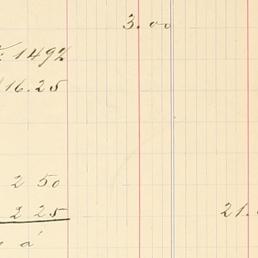 3.00
1492
16.25
2 50
2 25
21.
a